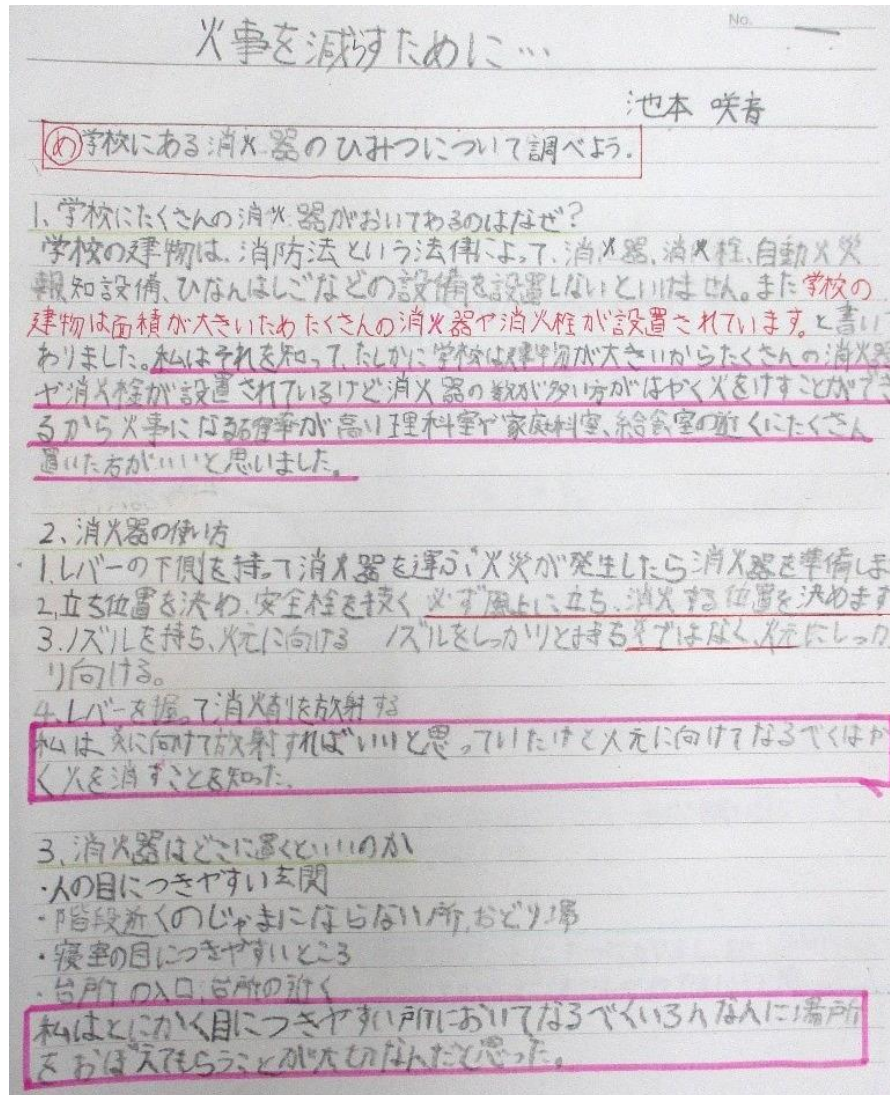 No.
火事を減らすために…
池本 咲音
め 学校にある消火器のひみつについて調べよう.
1、学校にたくさんの消火器がおいてあるのはなぜ?
学校の建物は、消防法という法律によって、消火器、消火栓、自動火災
報知設備、ひなんはしごなどの設備を設置しないといけません。また学校の
建物は面積が大きいためたくさんの消火器や消火栓が設置されています。と書い
ありました。私はそれを知って、たしかに学校は建物が大きいからたくさんの消火器
や消火栓が設置されているけど消火器の数が多い方がはやく火をけすことができ
るから火事になる確率が高い理科室や家庭科室、給食室の近くにたくさん
置いた方がいいと思いました。
2、消火器の使い方
1.レバーの下側を持って消火器を運ぶ 火災が発生したら消火器を準備しま
2.立ち位置を決め、安全栓を抜く 必ず風上に立ち、消火する位置を決めます
3.ノズルを持ち、火元に向ける ノズルをしっかりと持ち炎ではなく、火元にしっか
り向ける。
4.レバーを握って消火剤を放射する
私は、炎に向けて放射すればいいと思っていたけど火元に向けてなるべくはや
く火を消すことを知った.
3、消火器はどこに置くといいのか
・人の目につきやすい玄関
・階段近くのじゃまにならない所、おどり場
・寝室の目につきやすいところ
・台所の入口、台所の近く
私はとにかく目につきやすい所においてなるべくいろんな人に場所
をおぼえてもらうことが大切なんだと思った。